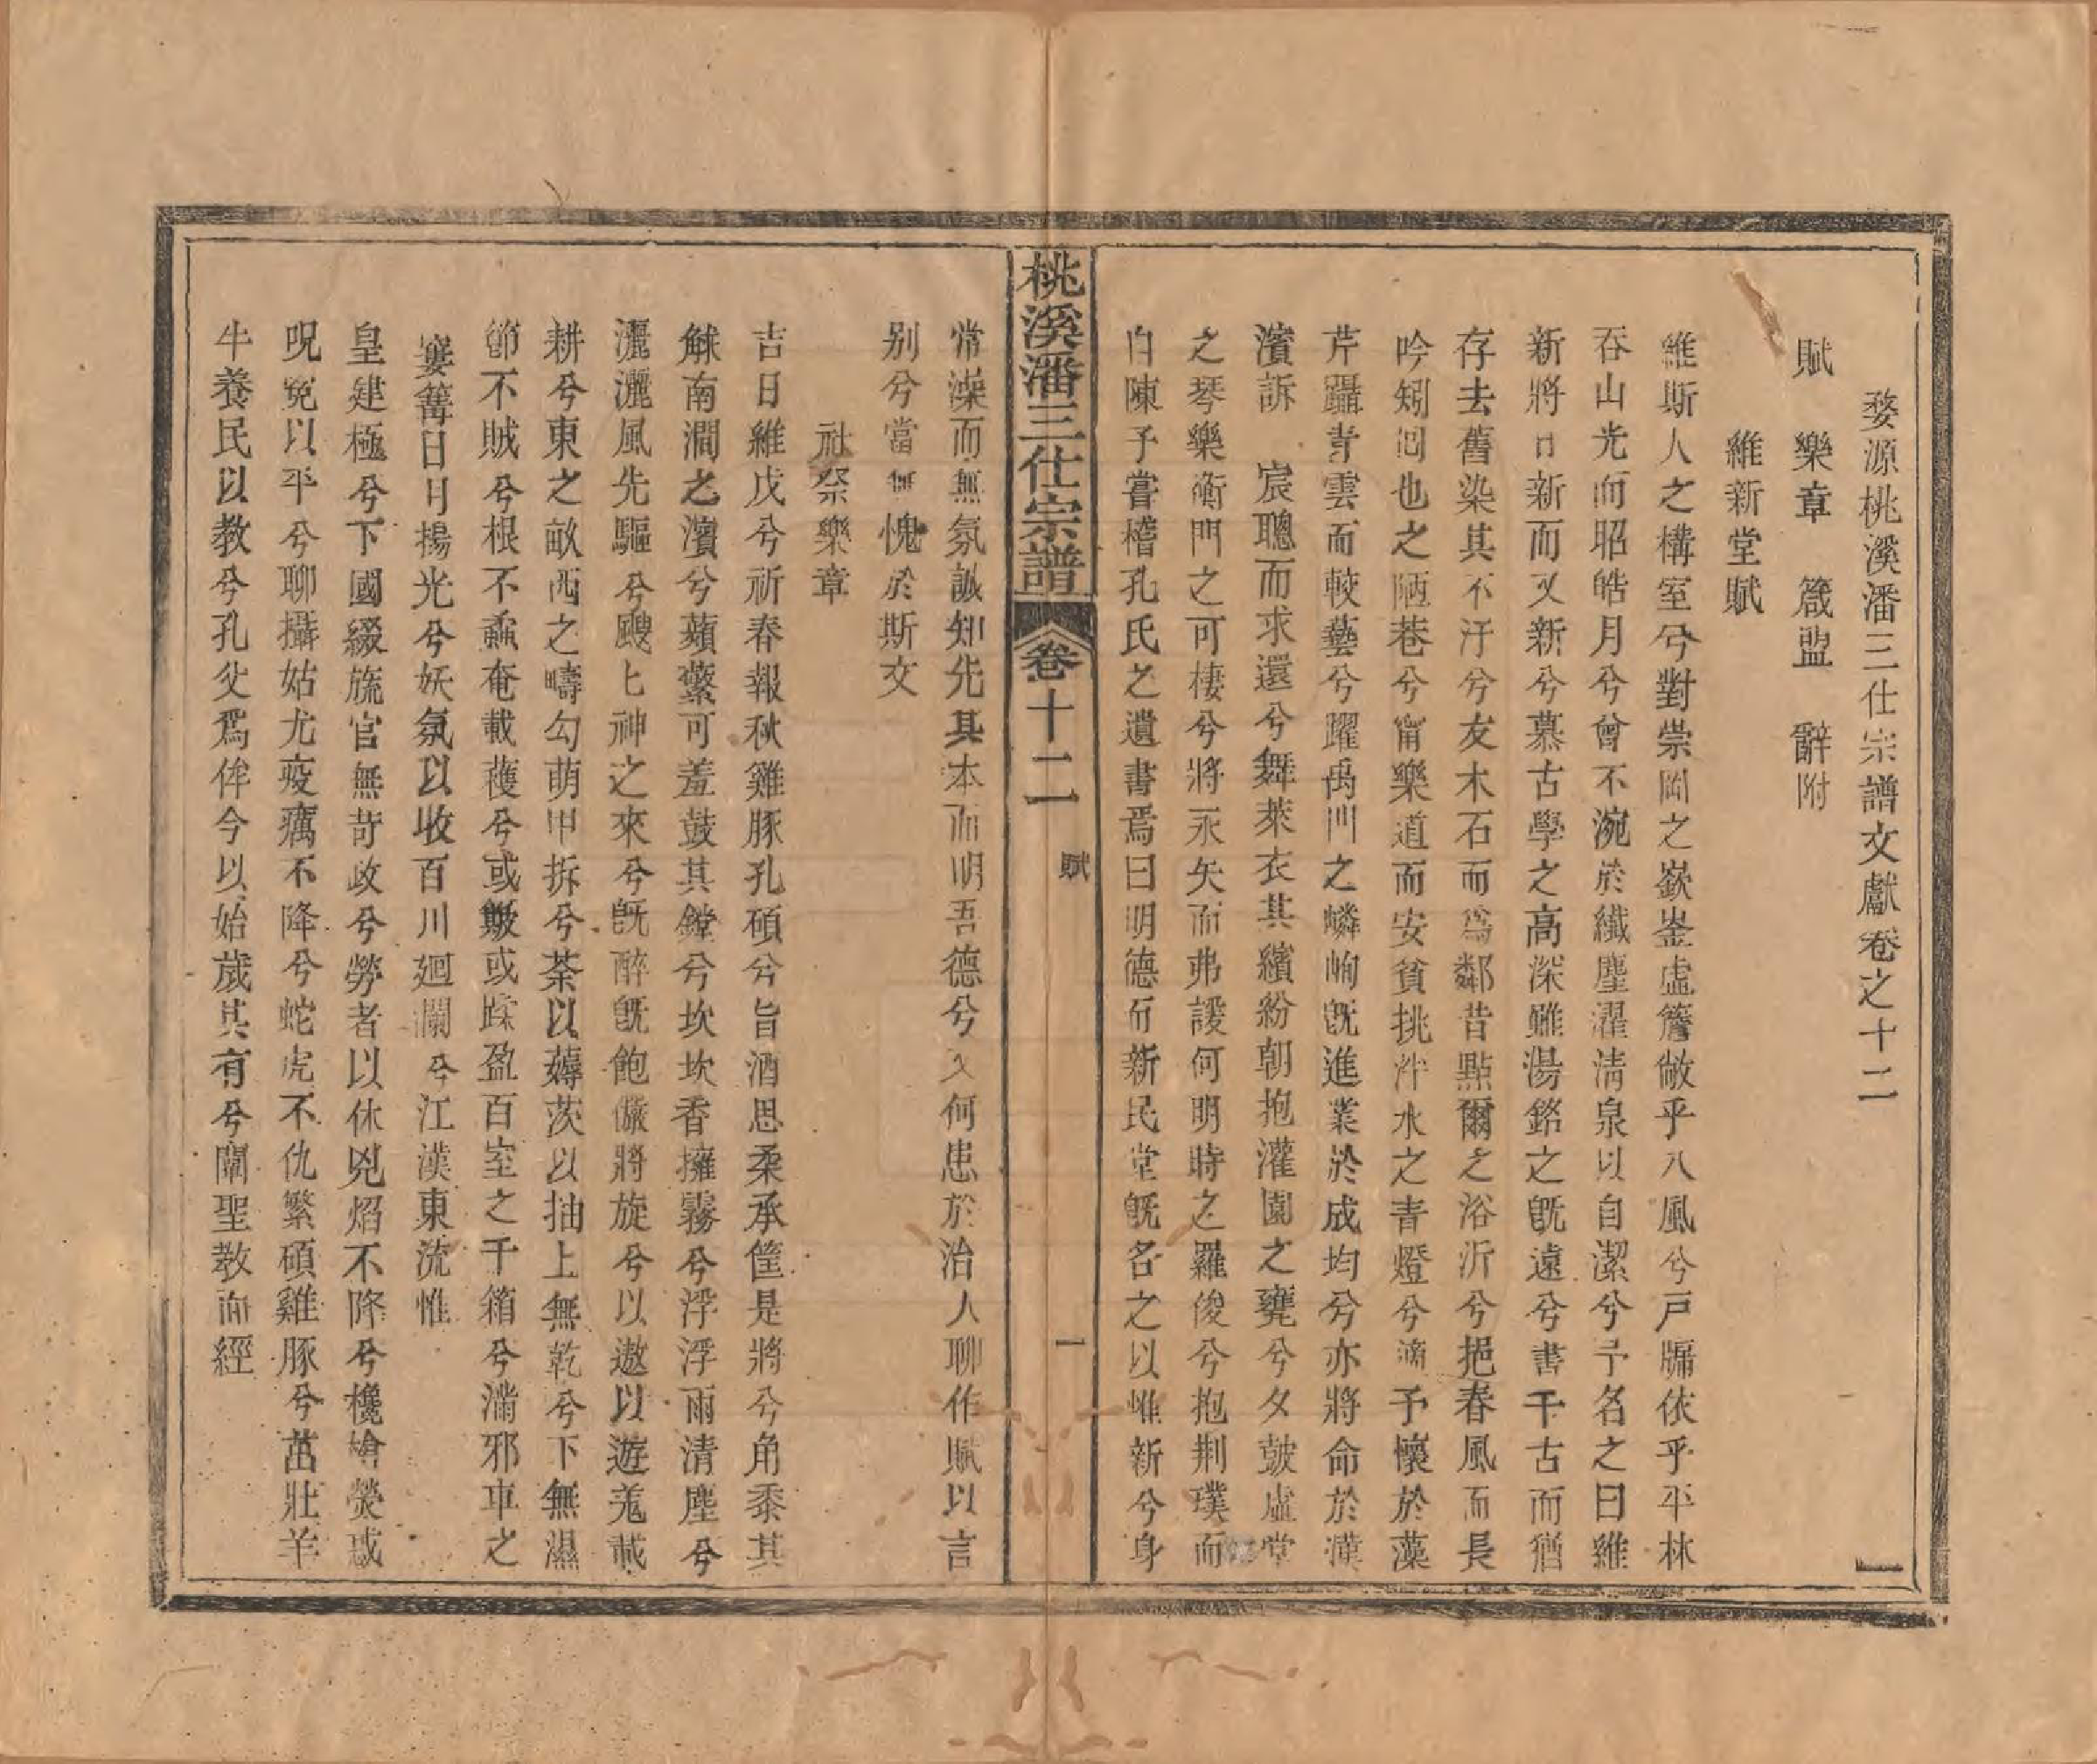 婺源桃溪潘三仕宗譜文獻卷之十二
賦　樂章　箴盟　辭附
維新堂賦
維斯人之構室兮對崇岡之嶔崟虛簷敞乎八風兮戸牖依乎平林
吞山光而昭皓月兮曾不涴於纖塵濯清泉以自潔兮予名之曰維
新將日新而又新兮慕古學之高深雖湯銘之旣遠兮書千古而猶
存去舊染其不汙兮友木石而爲鄰昔點爾之浴沂兮挹春風而長
吟矧囘也之陋巷兮甯樂道而安貧挑泮水之青燈兮滴予懷於藻
芹躡青雲而較藝兮躍禹門之嶙峋旣進業於成均兮亦將命於漢
濱訴　宸聰而求還兮舞萊衣其繽紛朝抱灌園之甕兮夕鼓虛堂
之琴樂衡門之可棲兮將永矢而弗諼何明時之羅俊兮抱荆璞而
自陳予嘗稽孔氏之遺書焉曰明德而新民堂旣名之以惟新兮身
桃溪潘三仕宗譜　卷十二　賦　一
常澡而無氛誠知先其本而明吾德兮又何患於治人聊作賦以言
别兮當無愧於斯文
社祭樂章
吉日維戊兮祈春報秋雞豚孔碩兮旨酒思柔承筐是將兮角黍其
觩南澗之濱兮蘋蘩可羞鼓其鏜兮坎坎香擁霧兮浮浮雨清塵兮
灑灑風先驅兮颼匕神之來兮旣醉旣飽儼將旋兮以遨以遊羗載
耕兮東之畝西之疇勾萌甲拆兮荼以薅茨以抽上無乾兮下無濕
節不賊兮根不蟊奄載穫兮或簸或蹂盈百室之千箱兮滿邪車之
窶篝日月揚光兮妖氛以收百川廻瀾兮江漢東流惟
皇建極兮下國綴旒官無苛政兮勞者以休兇焰不降兮欃槍熒惑
呪冕以平兮聊攝姑尤疫癘不降兮蛇虎不仇繁碩雞豚兮茁壯羊
牛養民以教兮孔父爲侔今以始歲其有兮闡聖教而經